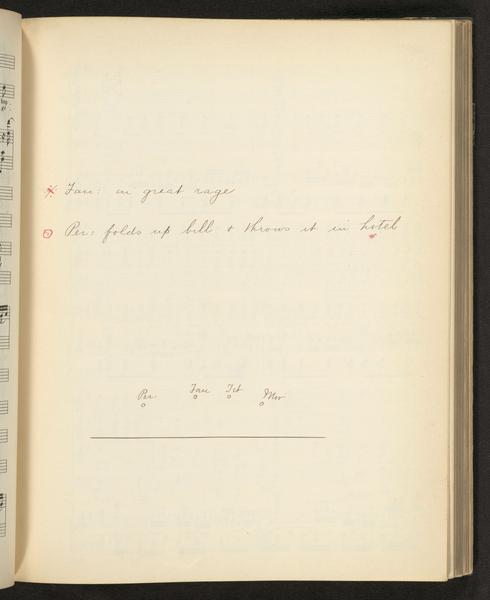 Fau: in great rage
Per: folds up bill & throws it in hotel
Per. Fau Tit Mor